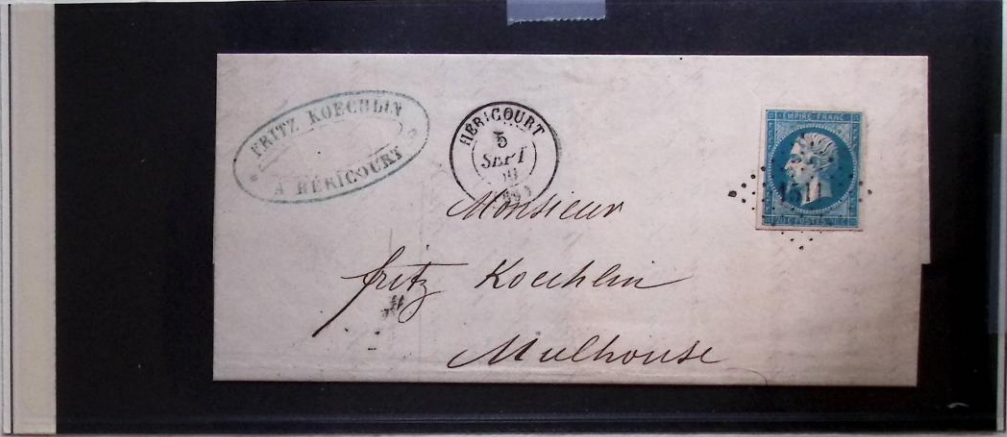 FRITZ KOECHLIN
A HÉRICOURT
HÉRICOURT
5
SEPT
EMPIRE FRANC
1511
20 C POSTES 20 C
Monsieur
fritz Koechlin
Mulhouse